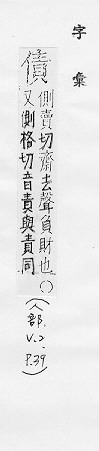 字彙
債
側賣切齋去聲負財也○
又側格切音責與責同
(人部.V.2.P.39)